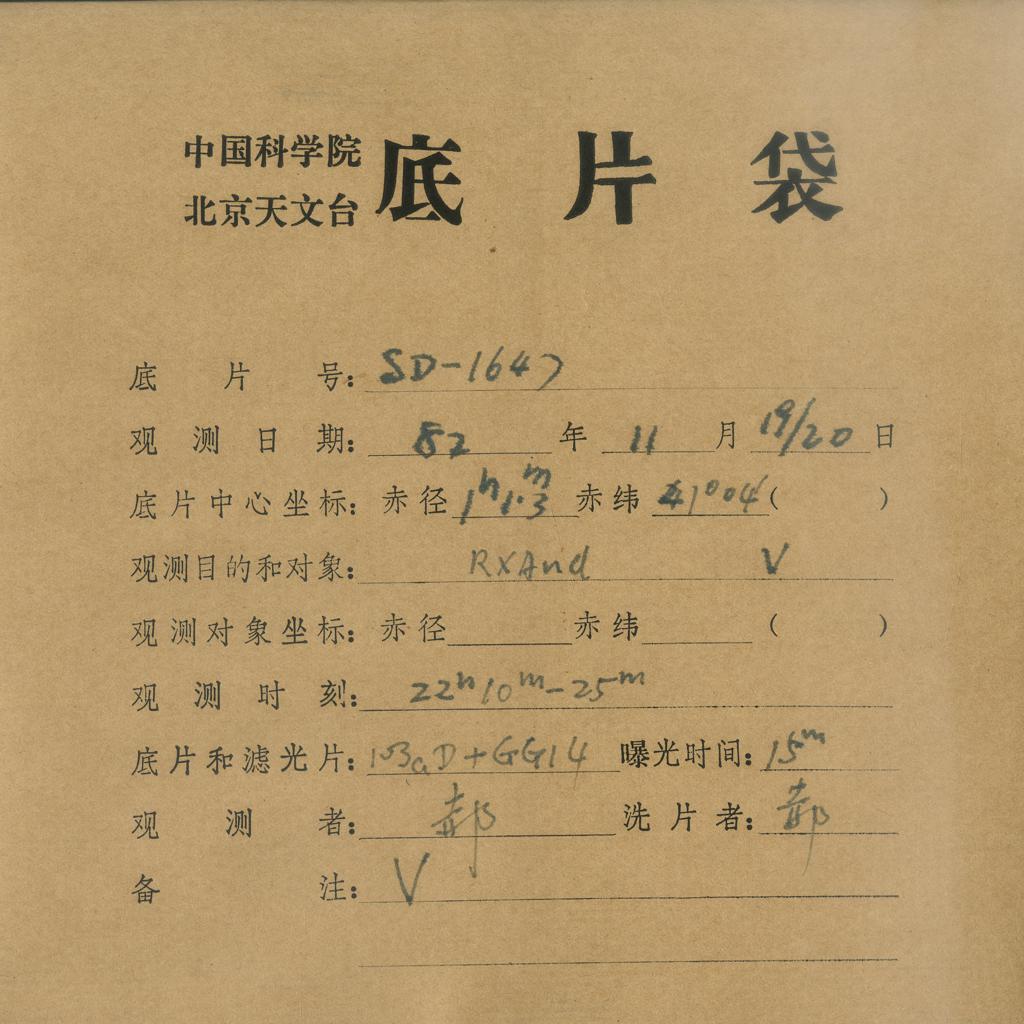 中国科学院
北京天文台
底片袋
底片号: SD-1647
观测日期: 82年11月19/20日
底片中心坐标: 赤径 1ʰ1.3ᵐ 赤纬 41°04′( )
观测目的和对象: RXAnd V
观测对象坐标: 赤径 赤纬 ( )
观测时刻: 22ʰ10ᵐ-25ᵐ
底片和滤光片: 103aD+GG14 曝光时间: 15ᵐ
观测者: 郝 洗片者: 郝
备注: V